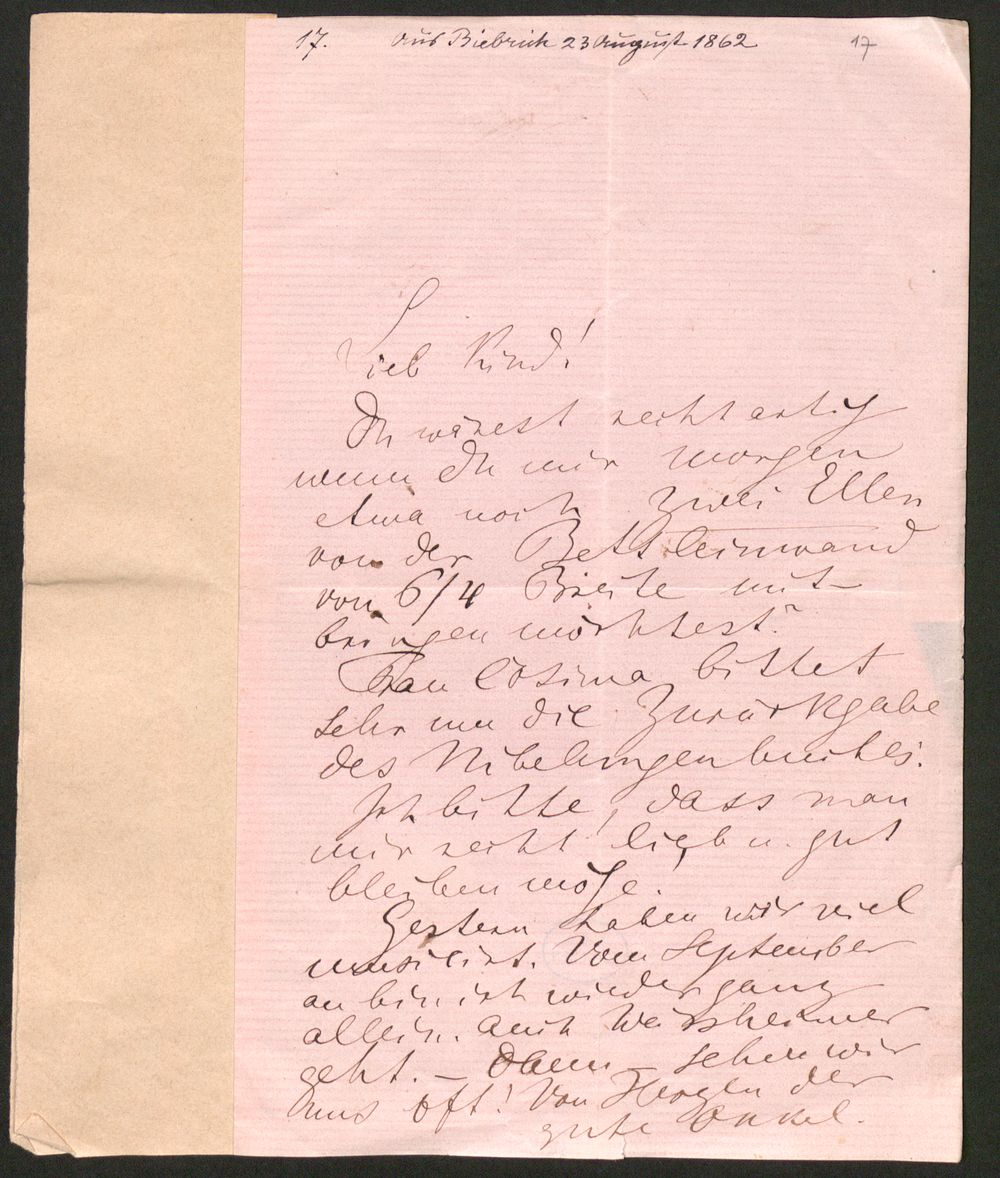 17. Aus Biebrich 23 August 1862 17
Lieb Kind!
Du wärest recht artig
wenn Du mir morgen
etwa noch zwei Ellen
von der Bettleinwand
von 6/4 Breite mit-
bringen möchtest.
Frau Cosima bittet
sehr um die Zurückgabe
des Nibelungenbuches.
Ich bitte, dass man
mir recht lieb u. gut
bleiben möge.
Gestern haben wir viel
musicirt. Vom September
an bin ich wieder ganz
allein. Auch Weissheimer
geht. – Dann – sehen wir
uns oft! Von Herzen der
gute Onkel.